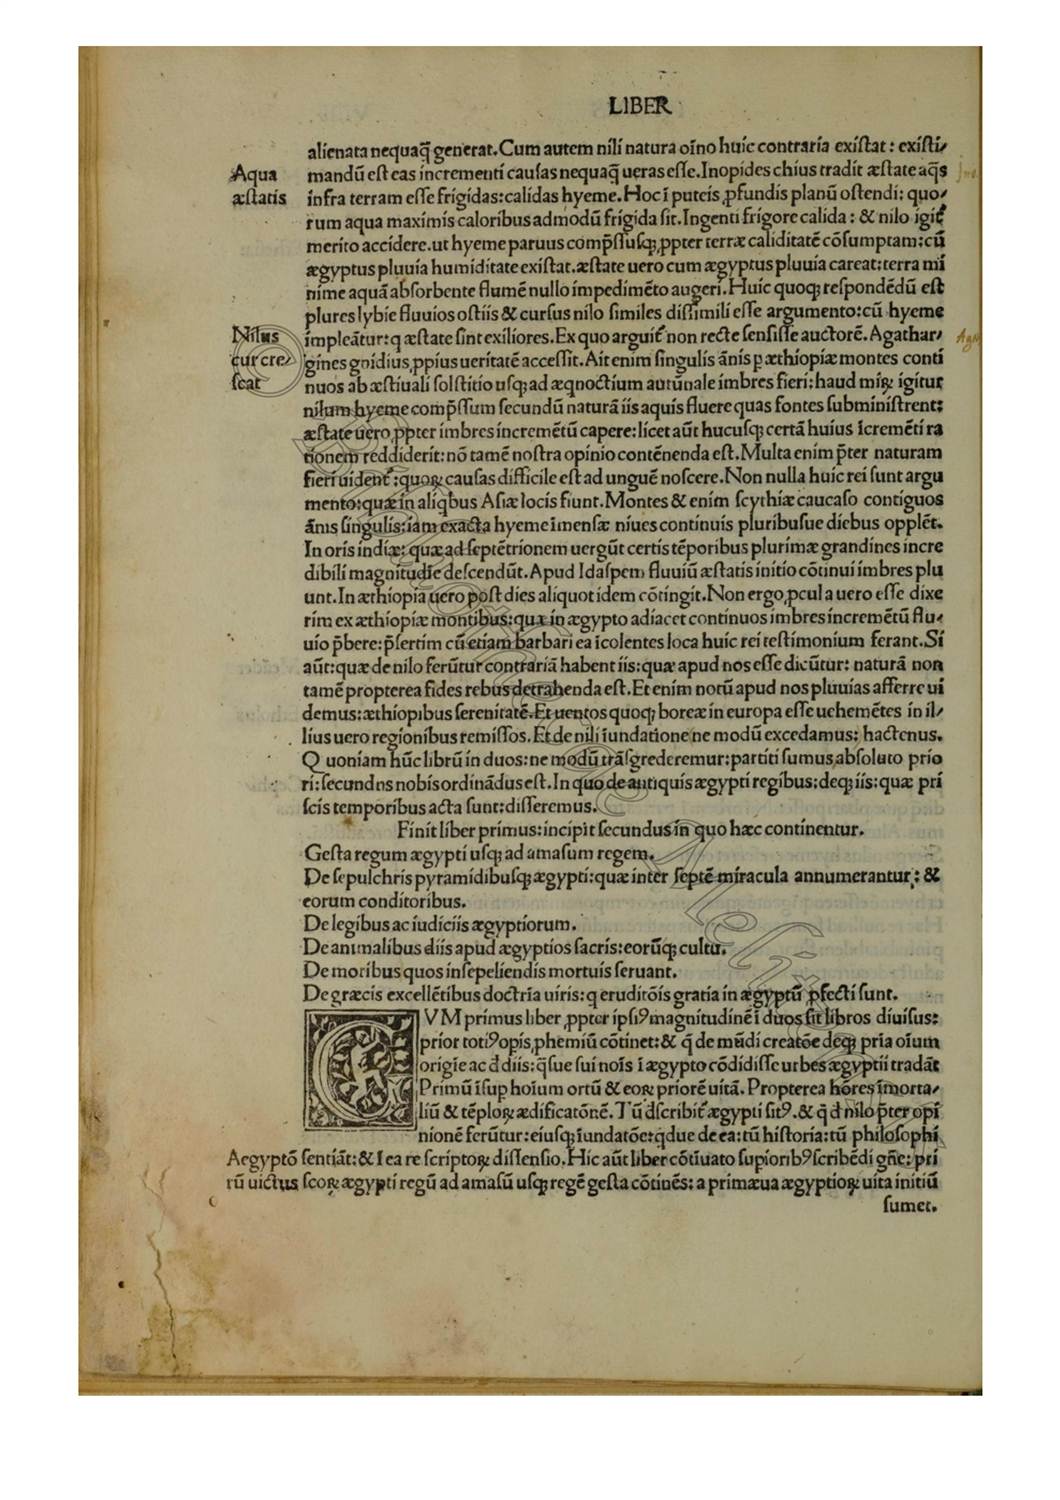 LIBER
alienata nequaq̃ generat. Cum autem nili natura oĩno huic contraria existat: existi/
Aqua
æstatis
mandũ est eas incrementi causas nequaq̃ ueras esse. Inopides chius tradit æstate aq̃s
infra terram esse frigidas: calidas hyeme. Hoc ĩ puteis ꝓfundis planũ ostendi: quo/
rum aqua maximis caloribus admodũ frigida sit. Ingenti frigore calida: & nilo igit᷑
merito accidere. ut hyeme paruus comp̃ssusqꝫ ꝓpter terræ caliditatẽ cõsumptam: cũ
ægyptus pluuia humiditate existat. æstate uero cum ægyptus pluuia careat: terra mi
nime aquã absorbente flumẽ nullo impedimẽto augeri. Huic quoqꝫ respondẽdũ est
plures lybie fluuios ostiis & cursus nilo similes dissimili esse argumento: cũ hyeme
Nilus
cur cre/
scat
impleãtur: q æstate sint exiliores. Ex quo arguit᷑ non recte sensisse auctorẽ. Agathar/
gines gnidius ꝓpius ueritatẽ accessit. Ait enim singulis ãnis ꝑ æthiopiæ montes conti
nuos ab æstiuali solstitio usqꝫ ad æqnoctium autũnale imbres fieri: haud miꝝ igitur
nilum hyeme comp̃ssum secundũ naturã iis aquis fluere quas fontes subministrent:
æstate uero ꝓpter imbres incremẽtũ capere: licet aũt hucusqꝫ certã huius ĩcremẽti ra
tionem reddiderit: nõ tamẽ nostra opinio contẽnenda est. Multa enim p̃ter naturam
fieri uident᷑: quoꝝ causas difficile est ad unguẽ noscere. Non nulla huic rei sunt argu
mento: quæ in aliqbus Asiæ locis fiunt. Montes & enim scythiæ caucaso contiguos
ãnis singulis: iam exacta hyeme ĩmensæ niues continuis pluribusue diebus opplẽt.
In oris indiæ: quæ ad septẽtrionem uergũt certis tẽporibus plurimæ grandines incre
dibili magnitudĩe descendũt. Apud Idaspem fluuiũ æstatis initio cõtinui imbres plu
unt. In æthiopia uero post dies aliquot idem cõtingit. Non ergo ꝓcul a uero esse dixe
rim ex æthiopiæ montibus: quæ in ægypto adiacet continuos imbres incremẽtũ flu/
uio p̃bere: p̃sertim cũ etiam barbari ea ĩcolentes loca huic rei testimonium ferant. Si
aũt: quæ de nilo ferũtur contrariã habent iis: quæ apud nos esse dicũtur: naturã non
tamẽ propterea fides rebus detrahenda est. Et enim notũ apud nos pluuias afferre ui
demus: æthiopibus serenitatẽ. Et uentos quoqꝫ boreæ in europa esse uehemẽtes in il/
lius uero regionibus remissos. Et de nili ĩundatione ne modũ excedamus: hactenus.
Q uoniam hũc librũ in duos: ne modũ trãsgrederemur: partiti sumus absoluto prio
ri: secundns nobis ordinãdus est. In quo de antiquis ægypti regibus: deqꝫ iis: quæ pri
scis temporibus acta sunt: disseremus.
Finit liber primus: incipit secundus in quo hæc continentur.
Gesta regum ægypti usqꝫ ad amasum regem.
De sepulchris pyramidibusqꝫ ægypti: quæ inter septẽ miracula annumerantur: &
eorum conditoribus.
De legibus ac iudiciis ægyptiorum.
De animalibus diis apud ægyptios sacris: eorũqꝫ cultu.
De moribus quos in sepeliendis mortuis seruant.
De græcis excellẽtibus doctrĩa uiris: q eruditõis gratia in ægyptũ ꝓfecti sunt.
CVM primus liber ꝓpter ipsiꝰ magnitudinẽ ĩ duos sit libros diuisus:
prior totiꝰ opis ꝓhemiũ cõtinet: & q̃ de mũdi creatõe deqꝫ pria oĩum
origĩe ac d̃ diis: q̃ sue sui noĩs ĩ ægypto cõdidisse urbes ægyptii tradãt
Primũ ĩsup hoĩum ortũ & eoꝝ priorẽ uitã. Propterea hõres ĩmorta/
liũ & tẽploꝝ ædificatõnẽ. Tũ d̃scribit᷑ ægypti sitꝰ. & q̃ d̃ nilo p̃ter opi
nionẽ ferũtur: eiusqꝫ ĩundatõe: q̃due de ea: tũ historia: tũ philosophi
Aegyptõ sentiãt: & I ea re scriptoꝝ dissensio. Hic aũt liber cõtiuato supioribꝰ scribẽdi gñe: pri
rũ uictus scoꝝ ægypti regũ ad amasũ usqꝫ regẽ gesta cõtinẽs: a primæua ægyptioꝝ uita initiũ
sumet.